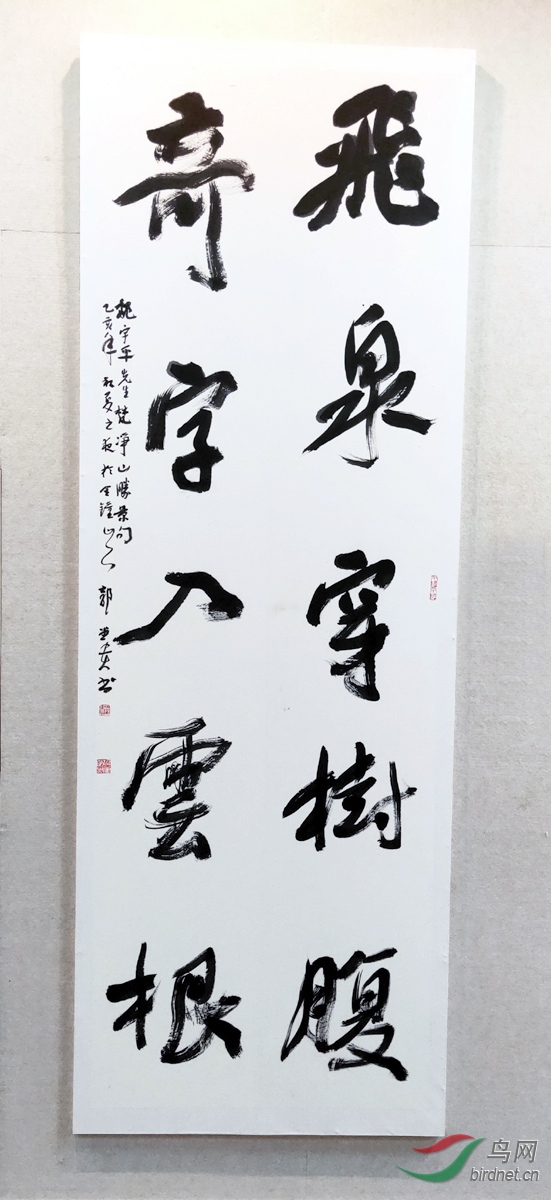 飛泉穿樹腹
奇字入雲根
姚宇平先生梵净山勝景句
乙亥年初夏之夜於金鐘山下 郭書
鸟网
birdnet.cn